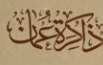 ذاكرة عُمان